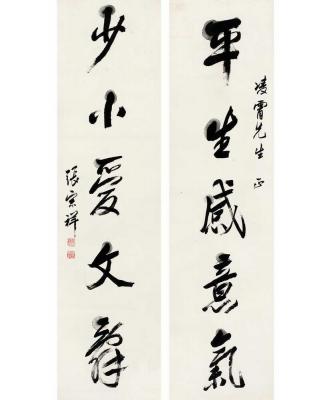 凌霄先生 正
平生感意氣
少小愛文辭
張宗祥